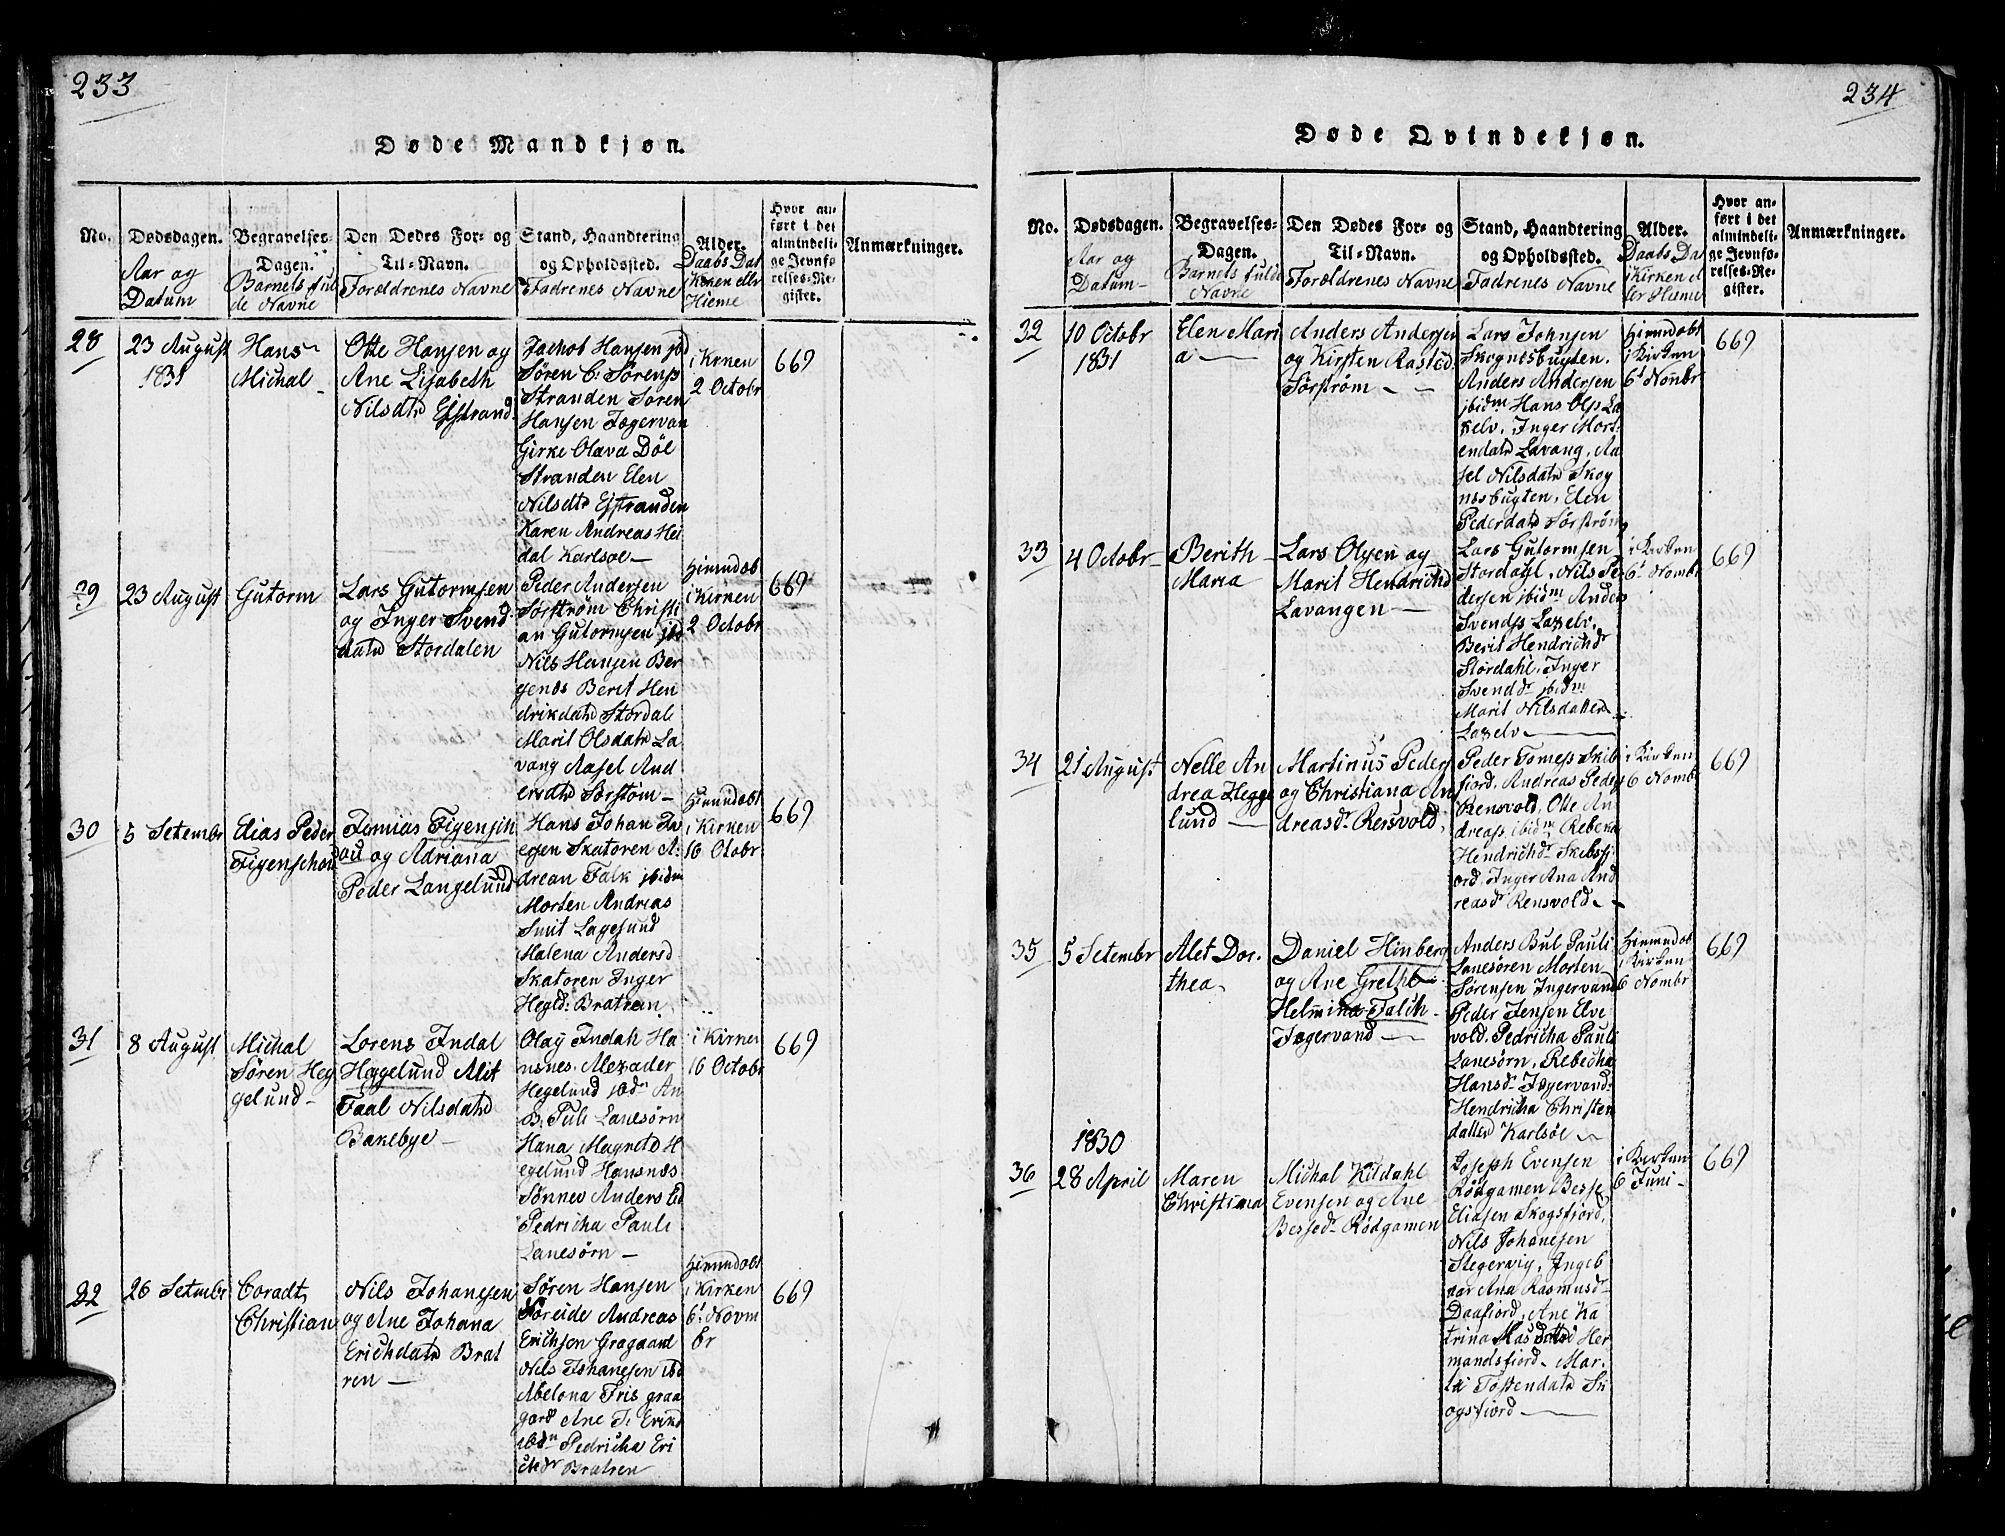 233
Døde Mandkjøn.
No.
Dødsdagen.
Aar og
Datum
Begravelses-
Dagen.
Barnets ful
de Navne
Den Dødes For- og
Til-Navn.
Forældrenes Navne
Stand, Haandtering
og Opholdssted.
Fadrenes Navne
Alder.
Daabs Dat
i Kirken eller
Hieme
Hvor an-
ført i det
almindeli-
ge Jevnfø-
relses-Re-
gister.
Anmærkninger.
28
23 August
1831
Hans
Michal
Otte Hansen og
Ane Lisabeth
Nilsdtr Ejstrand
Jachob Hansen jbd
Søren C: Sørens
Stranden Søren
Hansen Jægervan
Girke Olava Döl
Stranden Elen
Nilsdtr Ejstranden
Karen Andreas Hei
dal Karlsøe
i Kirnen
2 Octobr
669
29
23 August
Gutorm
Lars Gutormsen
og Inger Svend
datr Stordalen
Peder Andersen
Sørstrøm Christi
an Gutormsen jbd
Nils Hansen Ber
genæs Berit Hen
drikdatr Stordal
Marit Olsdatr La
vang Aasel And
ersdtr Sørstøm
Hiemdøb
i Kirnen
2 Octobr
669
30
5 Setembr
Elias Peder
Figenschou
Jemias Figensch
ou og Adriana
Peder Langelund
Hans Johan Ja
egen Skatoren A
drean Falk jbidm
Morten Andreas
Smit Lagesund
Malena Andersd
Skatoren Inger
Hegld: Bratræn
Hiemdøbt
i Kirnen
16 Otobr
669
31
8 August
Michal
Søren Heg
gelund
Lorens Indal
Heggelund Alit
Faal Nilsdatr
Bakebye
Olay Indah Ha
nsnes, Alexader
Hegelund jbdm An
B. Puli Lanesørn
Hana Magnetd H
egelund Hansnæs
Sønnev Anders td
Pedricha Pauli
Lanesørn
i Kirnen
16 Octobr
669
32
26 Setmbr
Coradt
Christian
Nils Johanesen
og Ane Johana
Erichdatr Brat
ren
Søren Hansen
Soreide Andreas
Erichsen Gragaard
Nils Johanesen ibd
Abelona Fris graa
gord Ane J. Erikd
ibdm Pedricha Eri
chdr Bratren
Hiemdøbt
i Kirken
6t Novm
br
669
234
Døde Qvindekjøn.
No.
Dødsdagen.
Aar og
Datum
Begravelses-
Dagen.
Barnets fulde
Navne
Den Dødes For- og
Til-Navn.
Forældrenes Navne
Stand, Haandtering
og Opholdssted.
Fadrenes Navne
Alder.
Daabs Da
i Kirken el
ler Hieme
Hvor an-
ført i det
almindeli-
ge Jevnfø-
relses-Re-
gister.
Anmærkninger.
32
10 Octobr
1831
Elen Mari
a
Anders Andersen
og Kirsten Aasted
Sørstrøm
Lars Johnsen
Skognesbugten.
Anders Andersen
jbidm Hans Ols La
xelv, Inger Mort
endatr Lavang, Aa
sel Nilsdatr Skog
nesbugten, Elen
Pederdatr Sørstrøm
Hiemdøbt
i Kirken
6t Nonbr
669
33
4 Octobr
Berith
Maria
Lars Olsen og
Marit Hendrichd
Lavangen
Lars Gutormsen
Stordahl, Nils Pe
dersen jbidm Anders
Svends Laxelv,
Berit Hendrichdr
Stordahl, Inger
Svenddr jbidm
Marit Nilsdatter
Laxelv
i Kirken
6t Nombr
669
34
21 August
Nelle An
drea Hegge
lund
Martinus Peders
og Christiana An
dreasdr Rensvold
Peder Tomess Skib
fjord, Andreas Peders
Rensvold, Otte An
dreass, ibidm Rebeka
Hendrichdr Skibsfj
ord, Inger Ana And
reasdr Rensvold
i Kirken
6 Nombr
669
35
5 Setembr
Alet Dor
thea
Daniel Hinberg
og Ane Grethe
Helmina Falch
Jægervand
Anders Bul Pauli
Lanesøren Morten
Sørensen Jngervand
Peder Jensen Elve
vold, Pedricha Pauli
Lanesørn, Rebecha
Hansdr Jægervand
Hendricha Christen
datter Karlsöe
Hiemdøb
i Kirken
6 Nombr
669
1830
36
28 April
Maren
Christina
Michal Kildahl
Evensen og Ane
Bessedr Rødgamen
Joseph Evensen
Rødgamen Besse
Eliasen Skogsfjord,
Nils Johanesen
Stegervig, Ingeb
aar Ana Rasmusdr
Daafjord, Ane Ka
trina Mas Dattr Her
mandsfjord, Mar
ta Tostendatr Sk
ogsfjord
i Kirken
6 Juni
669